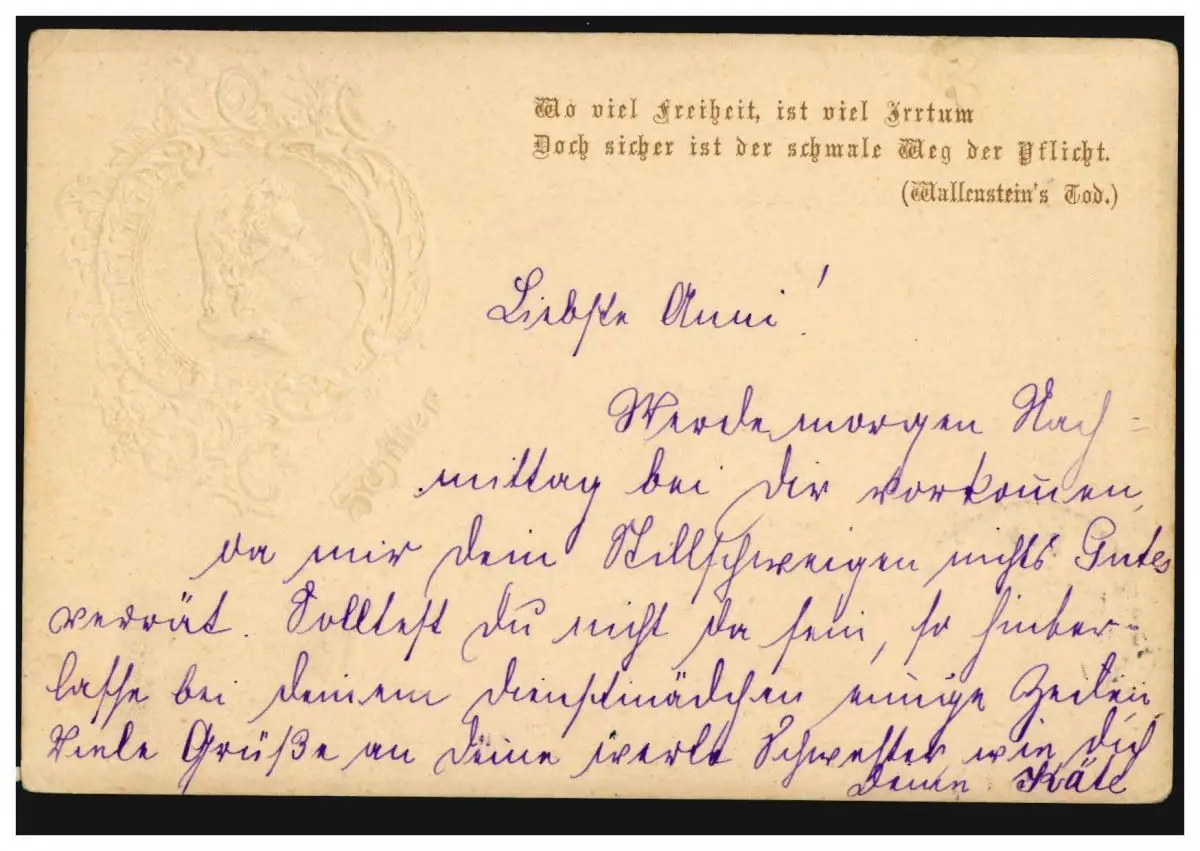 Wo viel Freiheit, ist viel Irrtum
Doch sicher ist der schmale Weg der Pflicht.
(Wallenstein's Tod.)
Schiller
Liebste Anni!
Werde morgen Nach=
mittag bei Dir vorkommen,
da mir Dein Stillschweigen nichts Gutes
verrät. Solltest Du nicht da sein, so hinter=
lasse bei Deinem Dienstmädchen einige Zeilen.
Viele Grüße an Deine werte Schwester wie Dich
Deine Käte